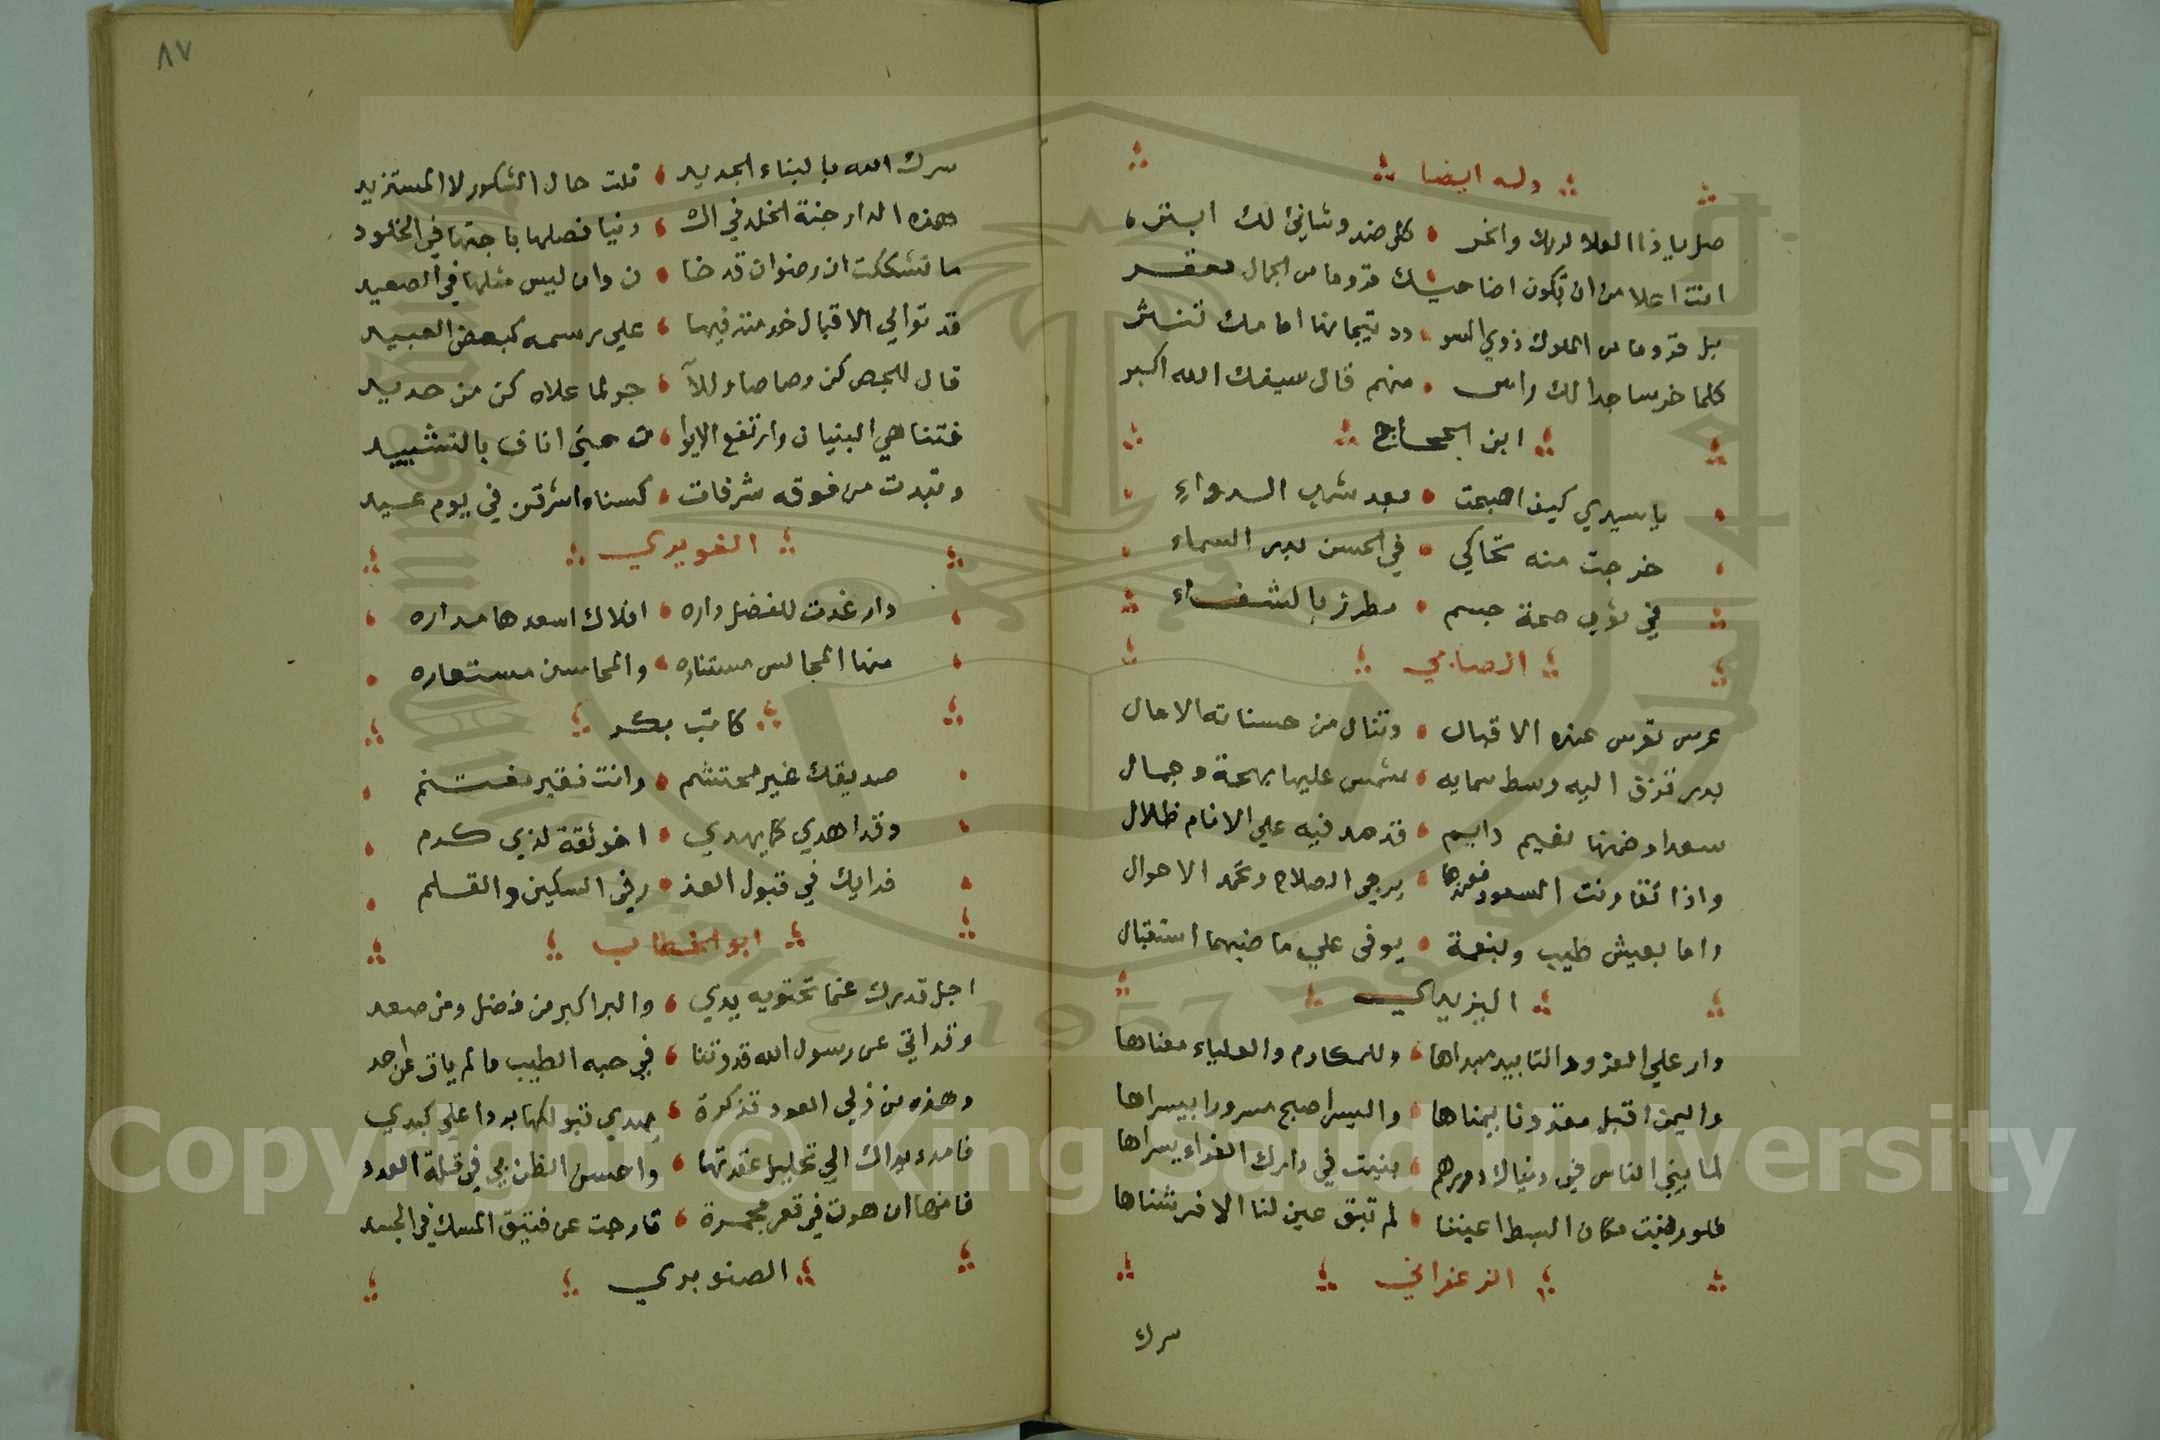 وله ايضا
صل يا ذا العلا لربك وانحر كل ضد وشانئ لك ابتر
انت اعلا من ان تكون اضاحيك قروما من الجمال تعقر
بل قروما من الملوك ذوي السو دد تيجانها امامك تنثر
كلما خر ساجدا لك راس منهم قال سيفك الله اكبر
ابن الحجاج
يا سيدي كيف اصبحت بعد شرب الدواء
خرجت منه تحاكي في الحسن بدر السماء
في ثوب صحة جسم مطرز بالشفاء
الصابي
عرس تعرس عنده الاقبال وتنال من حسناته الامال
بدر تزف اليه وسط سمايه شمس عليها بهجة وجمال
سعدا وضمنها نعيم دايم قد مد فيه علي الانام ظلال
واذا تقارنت السعود فعندها يرجي الصلاح وتحمد الاحوال
واما بعيش طيب وبنعمة يوفى علي ماضيهما استقبال
اليزيدي
دار علي العز والتاييد مبداها وللمكارم والعلياء مغناها
واليمن اقبل مقرونا بيمناها واليسر اصبح مسرورا بيسراها
لما بني الناس في دنياك دورهم بنيت في دارك الغراء يسراها
فلو رضيت مكان البسط اعيننا لم تبق عين لنا الا فرشناها
الزعفراني
سرك
٨٧
سرك الله بالبناء الجديد قلت حال الشكور لا المستزيد
هذه الدار جنة الخلد في الد دنيا فصلها باختها في الخلود
ما تشككت ان رضوان قد خا ن وان ليس مثلها في الصعيد
قد توالي الاقبال خدمته فيها علي رسمه كبعض العبيد
قال للجص كن رصاصا وللآ جر لما علاه كن من حديد
فتناهي البنيان وارتفع الايوا ن حتي اناف بالتشييد
وتبدت من فوقه شرفات كنساء اشرقن في يوم عيد
الغويري
دار غدت للفضل داره افلاك اسعدها مداره
منها المجالس مستناره والمحاسن مستعاره
كاتب بكر
صديقك غير محتشم وانت فقير مغتنم
وقد اهدي كما يهدي اخو ثقة لذي كرم
فرايك في قبول العذ ر في السكين والقلم
ابو الخطاب
اجل قدرك عما تحتويه يدي والبر اكبر من فضل ومن صعد
وقد اتي عن رسول الله قدوتنا في حبه الطيب ما لم يات عن احد
وهذه من ذكي العود تذكرة يهدي قبولكها بردا علي كبدي
فامدد يداك الي تحليل عقدتها واحسن الظن بي في قلة العدد
فانها ان هوت في قعر مجمرة تارجت عن فتيق المسك في الجسد
الصنوبري
Copyright © King Saud University
1957